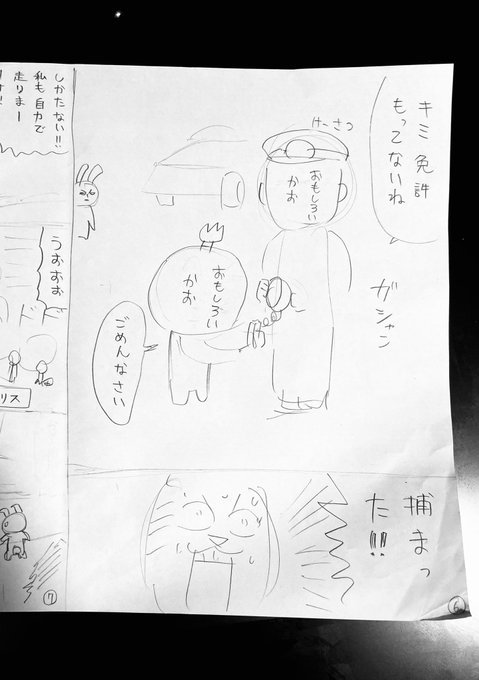 キミ 免許
もってないね
けーさつ
おもしろい
かお
ガシャン
おもしろい
かお
ごめんなさい
捕まっ
た!!
6
しかたない!!
私も自力で
走りまー
うおぉぉ
ドド
リス
7